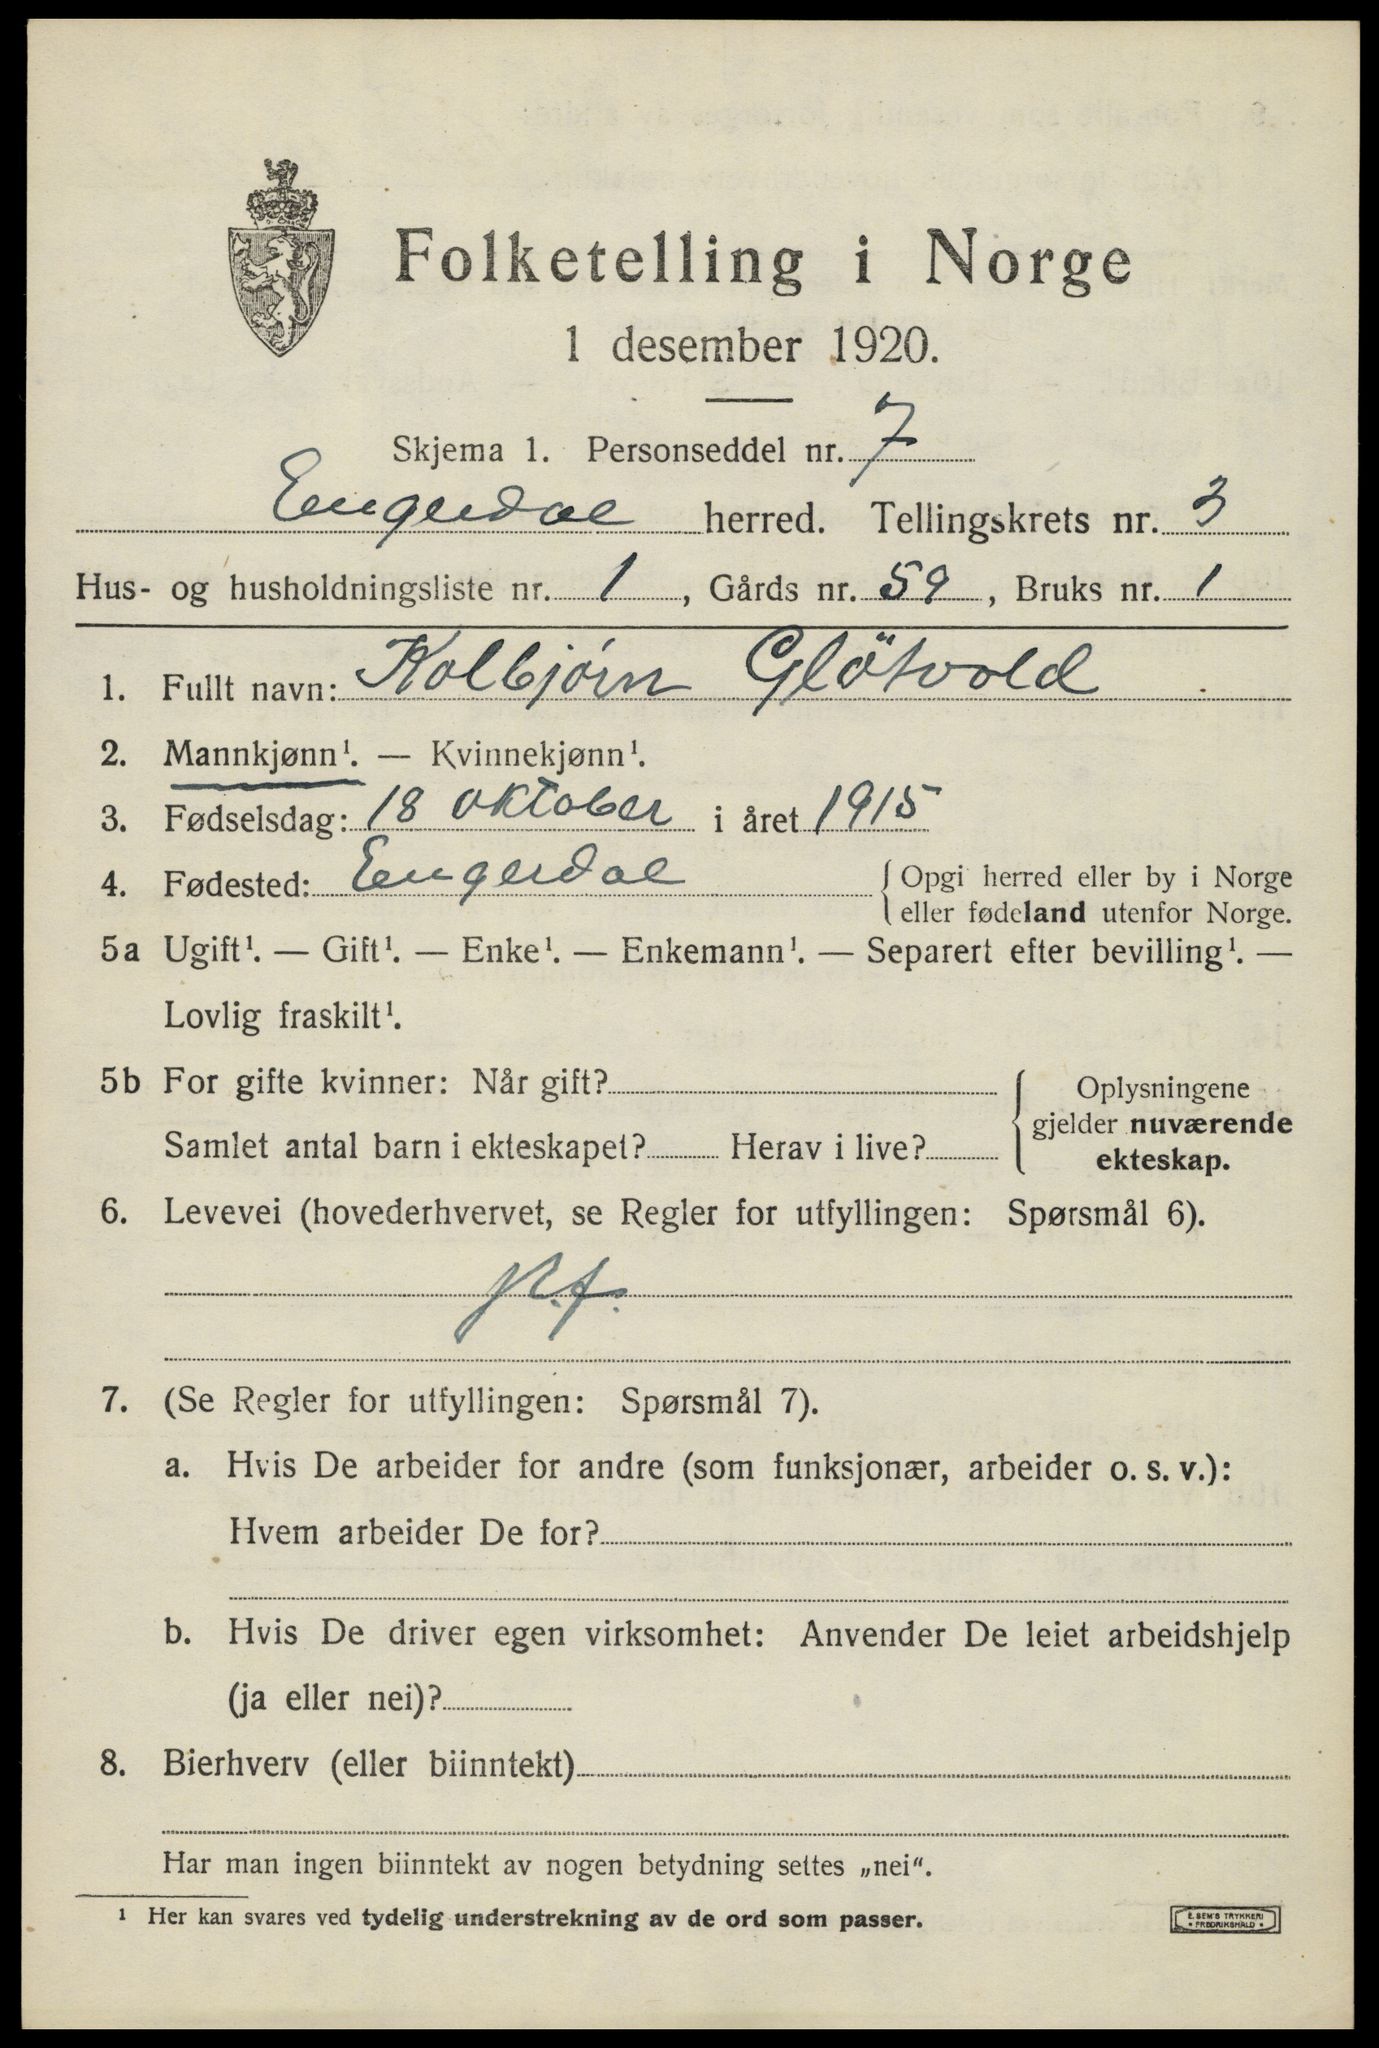 Folketelling i Norge
1 desember 1920.
Skjema 1. Personseddel nr. 7
Engerdal herred. Tellingskrets nr. 3
Hus- og husholdningsliste nr. 1, Gårds nr. 59, Bruks nr. 1
1. Fullt navn: Kolbjörn Glötvold
2. Mannkjønn¹. — Kvinnekjønn¹.
3. Fødselsdag: 18 oktober i året 1915
4. Fødested: Engerdal { Opgi herred eller by i Norge
eller fødeland utenfor Norge.
5a Ugift¹. — Gift¹. — Enke¹. — Enkemann¹. — Separert efter bevilling¹. —
Lovlig fraskilt¹.
5b For gifte kvinner: Når gift? { Oplysningene
gjelder nuværende
Samlet antal barn i ekteskapet? Herav i live?
ekteskap.
6. Levevei (hovederhvervet, se Regler for utfyllingen: Spørsmål 6).
7. (Se Regler for utfyllingen: Spørsmål 7).
a. Hvis De arbeider for andre (som funksjonær, arbeider o. s. v.):
Hvem arbeider De for?
b. Hvis De driver egen virksomhet: Anvender De leiet arbeidshjelp
(ja eller nei)?
8. Bierhverv (eller biinntekt)
Har man ingen biinntekt av nogen betydning settes „nei“.
¹ Her kan svares ved tydelig understrekning av de ord som passer.
E. SEM'S TRYKKERI
• FREDRIKSHALD •